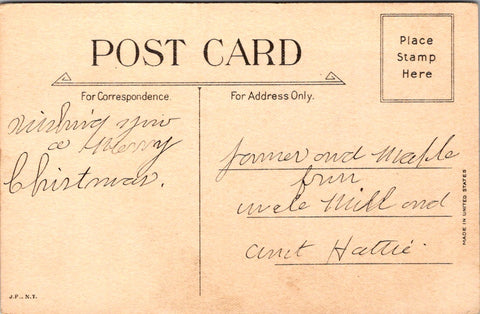 POST CARD
Place
Stamp
Here
For Correspondence.
For Address Only.
Wishing you
a Merry
Christmas.
and Maple
from
uncle Will and
aunt Hattie.
MADE IN UNITED STATES
J.P., N.Y.